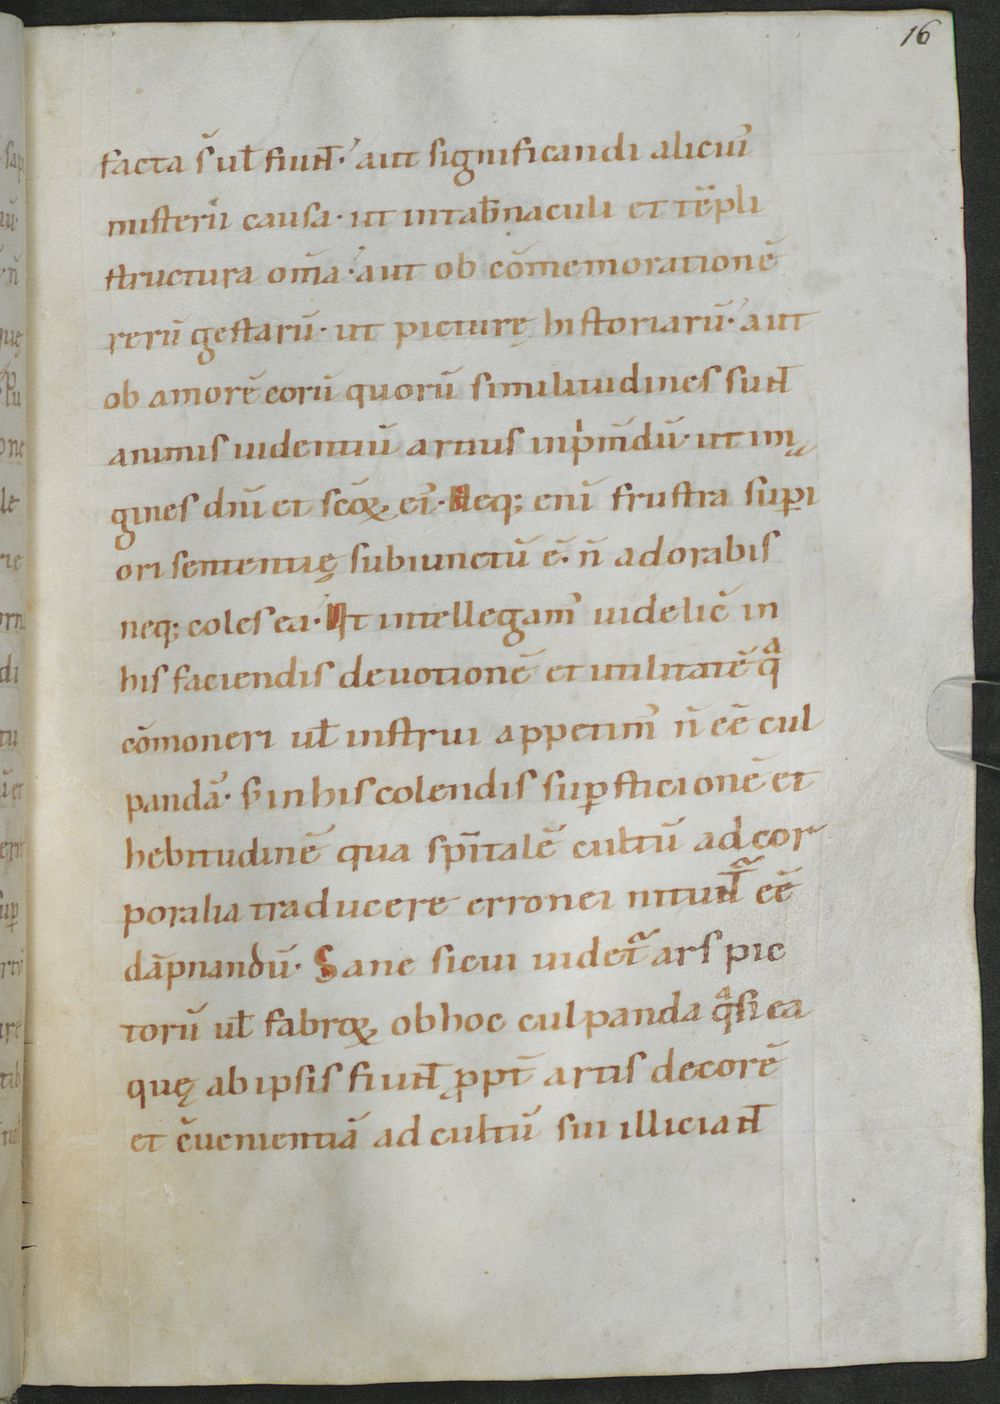 16
facta s̄ ul̄ fiunt̄· aut significandi alicui᾽
misterii causa· ut in tab̄naculi et tēpli
structura om̄a· aut ob cōmemorationē
rerū gestarū· ut picturę historiarū· aut
ob amorē eorū quorū similitudines sunt̄
animis uidentiū artius inp̍mdū· ut im
gines dn̄i et scōꝝ ei᾽· Neq; eni᷄ frustra suꝑi
ori sententię subiunctū ē· n̄ adorabis
neq; coles ea· Ut intellegam᾽ uidelic̄ in
his faciendis deuotionē et utilitatē qᵃ
cōmoneri ul̄ instrui appetim᾽ n̄ eē cul
pandā· s; in his colendis suꝑsticionē et
hebitudinē qua sp̄italē cultū ad cor
poralia traducere erronei nitunt̄ eē
dāpnandū· Sane sicui uidet̄ ars pic
torū ul̄ fabroꝝ ob hoc culpanda qᵃsi ea
quę ab ipsis fiunt̄ ꝓpt̄ artis decorē
et c̄uenientiā ad cultū sui illiciant̄